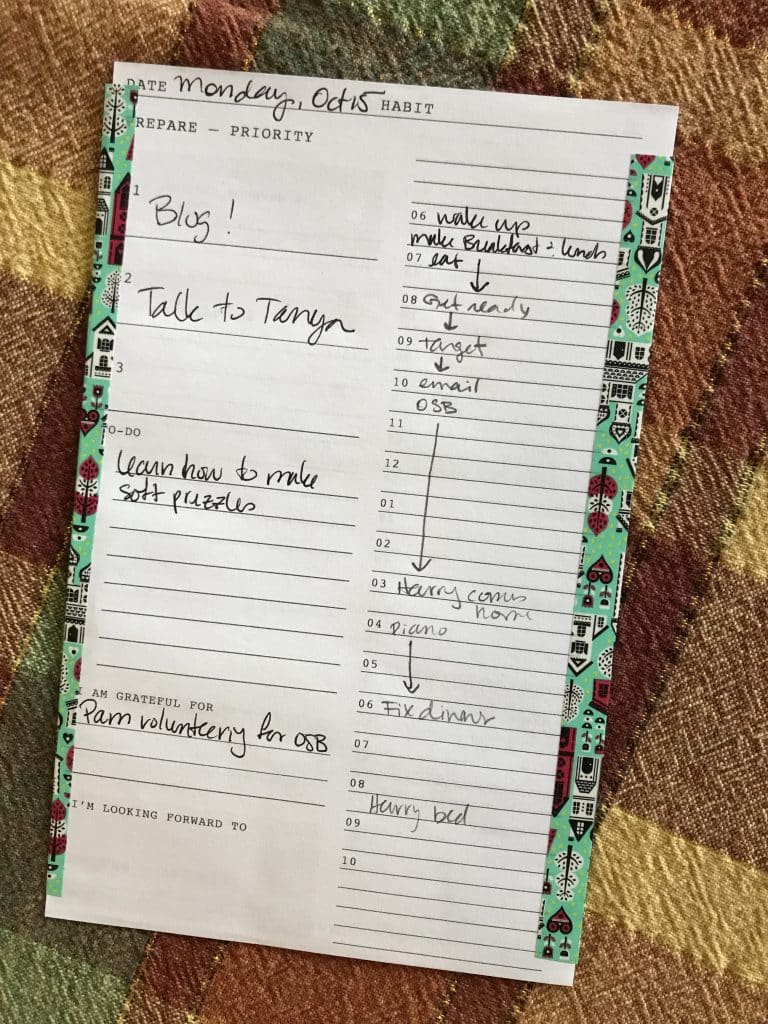 DATE Monday, Oct 15 HABIT
REPARE — PRIORITY
1
Blog !
2
Talk to Tanya
3
O-DO
learn how to make
soft puzzles
I AM GRATEFUL FOR
Pam volunteery for OSB
I'M LOOKING FORWARD TO
06 wake up
make Breakfast & lunch
07 eat
08 Get ready
09 target
10 email
OSB
11
12
01
02
03 Harry comes
home
04 Piano
05
06 Fix dinner
07
08
Harry bed
09
10